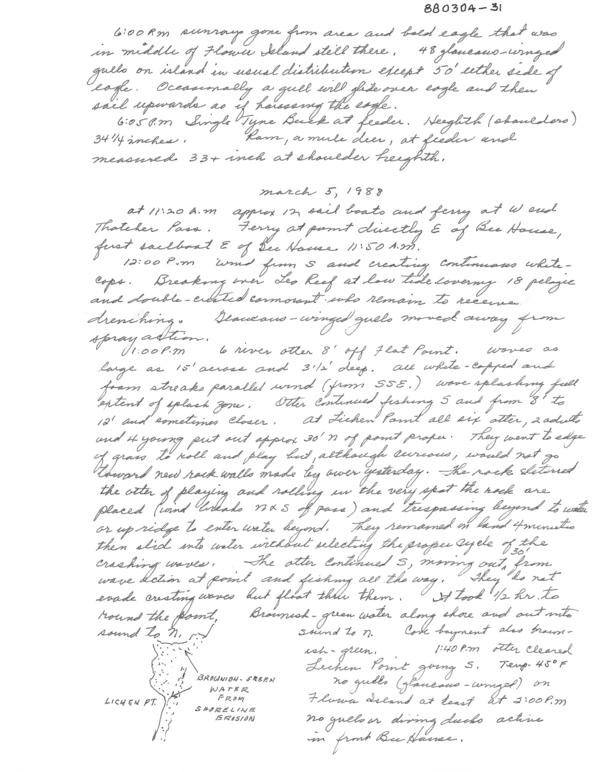 880304-31
6:00 P.m sunrays gone from area and bald eagle that was
in middle of Flower Island still there. 48 glaucous-winged
gulls on island in usual distribution except 50' either side of
eagle. Occasionally a gull will glide over eagle and then
sail upwards as if harassing the eagle.
6:05 P.m Single Tyne Buck at feeder. Heighth (shoulders)
34 1/4 inches. Ram, a mule deer, at feeder and
measured 33+ inch at shoulder heighth.
march 5, 1988
at 11:20 A.m approx 12 sail boats and ferry at W end
Thatcher Pass. Ferry at point directly E of Bee House,
first sailboat E of Bee House 11:50 A.m.
12:00 P.m wind from S and creating continuous white-
caps. Breaking over Leo Reef at low tide covering 18 pelagic
and double-crested cormorant who remain to receive
drenching. Glaucous-winged gulls moved away from
spray action.
1:00 P.m 6 river otter 8' off Flat Point. waves as
large as 15' across and 3 1/2' deep. all white-capped and
foam streaks parallel wind (from SSE.) wave splashing full
extent of splash zone. Otter continued fishing S and from 8' to
12' and sometimes closer. At Lichen Point all six otter, 2 adults
and 4 young put out approx 30' N of point proper. They went to edge
of grass to roll and play but, although curious, would not go
toward new rock walls made by owner yesterday. The rock
the otter of playing and rolling in the very spot the rock are
placed (wind breaks N & S of pass) and trespassing beyond to water
or up ridge to enter water beyond. They remained on land 4 minutes
then slid into water without selecting the proper cycle of the
crashing waves. The otter continued S, moving out 30' from
wave action at point and fishing all the way. They do not
evade cresting waves but float thru them. It took 1/2 hr. to
round the point. Brownish-green water along shore and out into
sound to N. Cove bayment also brown-
ish-green. 1:40 P.m otter cleared
Lichen Point going S. Temp. 45° F
no gulls (glaucous-winged) on
Flower Island at least at 2:00 P.m
no gulls or diving ducks active
in front Bee House.
LICHEN PT.
BROWNISH-GREEN
WATER
FROM
SHORELINE
EROSION